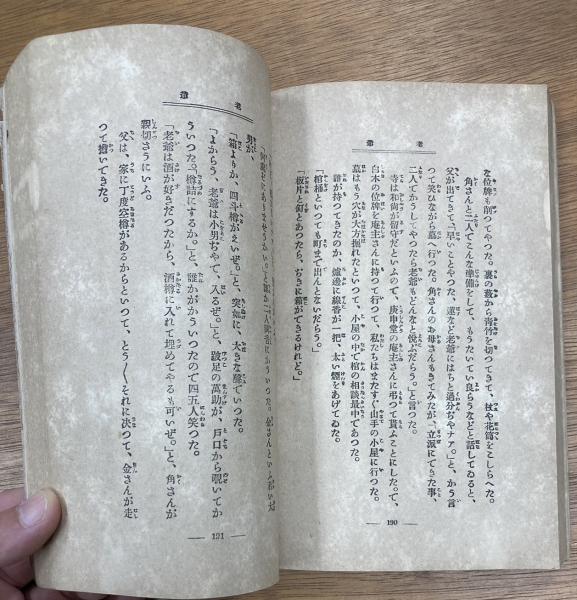 老爺
な位牌も削つてやつた。裏の藪から靑竹を切つてきて、杖や花筒をこしらへた。
角さんと二人でこんな準備をして、もうたいてい良らうなどと話してゐると、
父が出てきて『早いことやつた、蓮など老爺にはちと過分ぢやナァ。』と、かう言
つて笑ひながら墓へ行つた。角さんのお母さんもきてみたが、『立派にできた事、
二人でかうしてやつたら老爺もどんなと悅ぶだらう。』と言つた。
寺は和尙が留守だといふので、庚申堂の庵主さんに弔つて貰ふことにした。で、
白木の位牌を庵主さんに持つて行つて、私たちはまたすぐ山手の小屋に行つた。
墓はもう穴が大方掘れたといつて、小屋の中で棺の相談最中であつた。
誰が持つてきたのか、爐邊に線香が一把、太い煙をあげてゐた。
『棺桶といつても町まで出んとないだらう。』
『板片と釘とあつたら、ぢきに箱ができるけれど。』
— 190 —
老爺
男が、
『箱よりか、四斗樽がえいぜ。』と、突然に、大きな聲でいつた。
『よからう、老爺は小男ぢやて、入るぜ。』と、跛足の萬助が、戶口から覗いてか
ういつた。『樽詰にするか。』と、誰かがかういつたので四五人笑つた。
『老爺は酒が好きだつたから、酒樽に入れて埋めてやるも可いぜ。』と、角さんが
親切さうにいふ。
父は、家に丁度空樽があるからといつて、とう〱それに決つて、金さんが走
つて擔いできた。
— 191 —